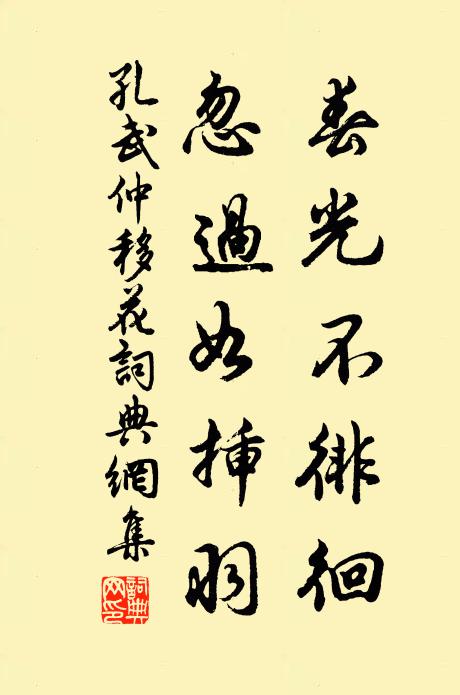 春光不徘徊
忽過如揷羽
孔武仲移花詞典網集
詞典網印